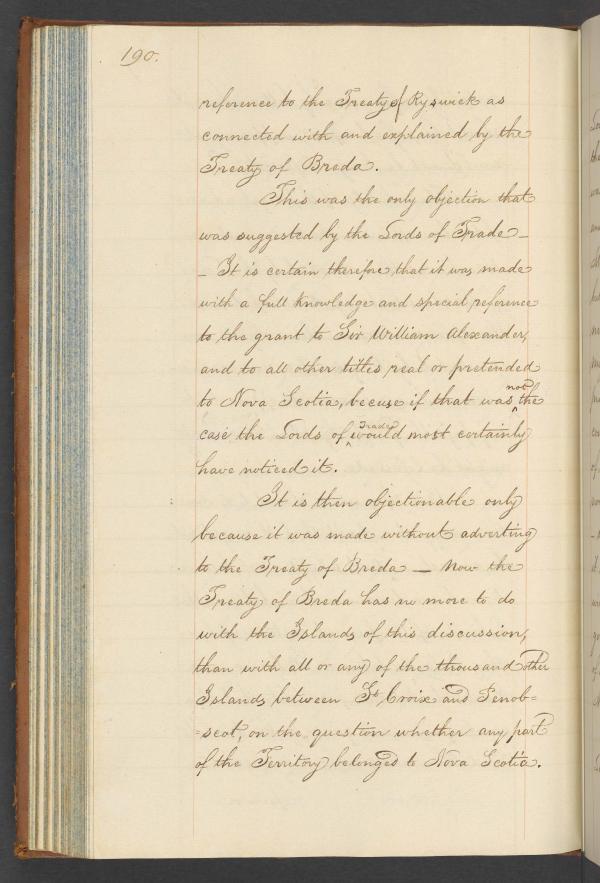 190.
reference to the Treaty of Ryswick as
connected with and explained by the
Treaty of Breda.
This was the only objection that
was suggested by the Lords of Trade _
_ It is certain therefore, that it was made
with a full knowledge and special reference
to the grant to Sir William Alexander,
and to all other titles real or pretended
to Nova Scotia, becuse if that was not the
case the Lords of Trade would most certainly
have noticed it.
It is then objectionable only
because it was made without adverting
to the Treaty of Breda _ Now the
Treaty of Breda has no more to do
with the Islands of this discussion,
than with all or any of the thousand other
Islands between St Croix and Penob=
=scot, on the question whether any part
of the Territory belonged to Nova Scotia.